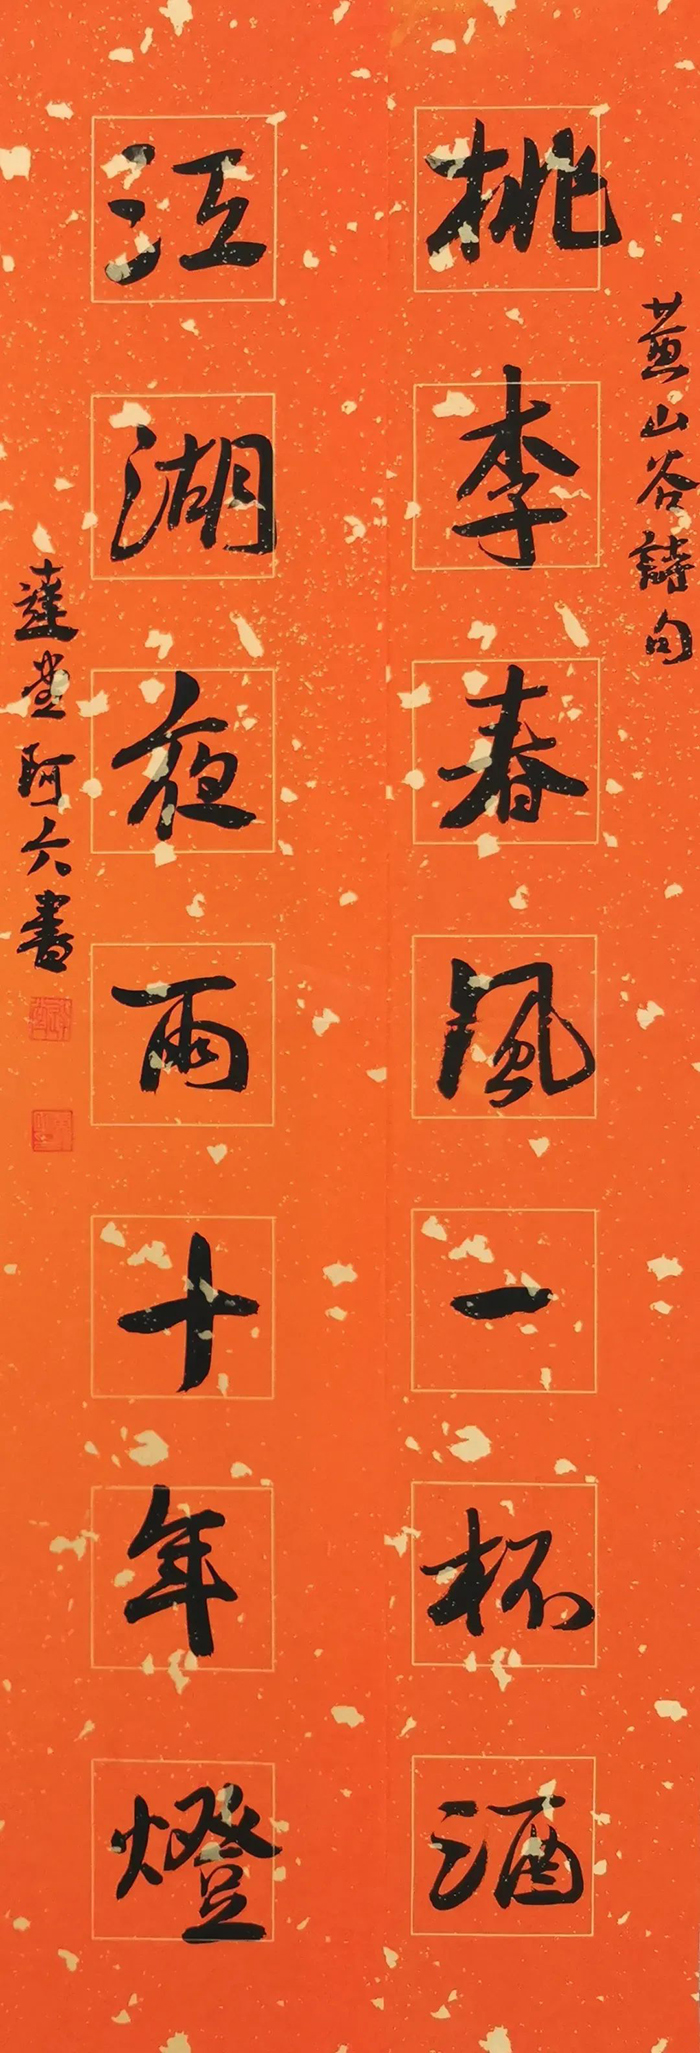 黄山谷詩句
桃李春風一杯酒
江湖夜雨十年燈
達堂阿六書